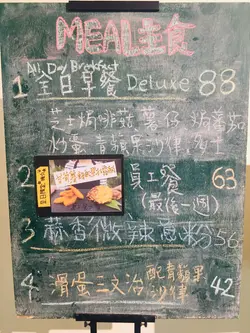 MEAL主食
All Day Breakfast
1 全日早餐 Deluxe 88
芝士焗啡菇 薯仔 焗蕃茄
炒蛋 青蘋果沙律 多士
2 員工餐 63
(最後一週)
3 蒜香微辣意粉 56
4 滑蛋三文治 配青蘋果沙律 42